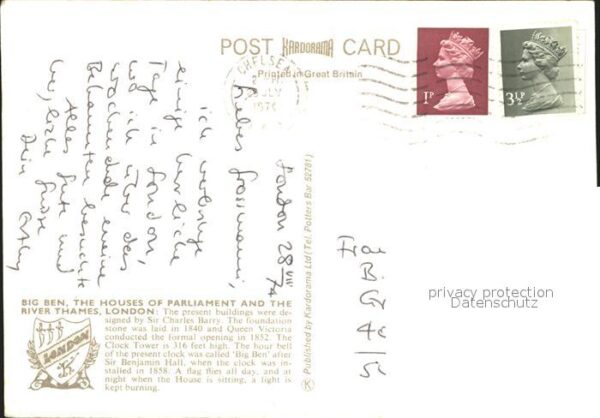 POST KARDORAMA CARD
Printed in Great Britain
CHELSEA
1P
3½P
London 28 VIII 74
Liebes Grossmami,
ich verbringe
einige herrliche
Tage in London,
wo ich über das
Wochenende meine
Bekannten besuchte
Alles Gute und
liebe Grüsse
Dein
BIG BEN, THE HOUSES OF PARLIAMENT AND THE
RIVER THAMES, LONDON: The present buildings were de-
signed by Sir Charles Barry. The foundation
stone was laid in 1840 and Queen Victoria
conducted the formal opening in 1852. The
Clock Tower is 316 feet high. The hour bell
of the present clock was called 'Big Ben' after
Sir Benjamin Hall, when the clock was in-
stalled in 1858. A flag flies all day, and at
night when the House is sitting, a light is
kept burning.
LONDON
K
Published by Kardorama Ltd (Tel. Potters Bar 52781)
privacy protection
Datenschutz